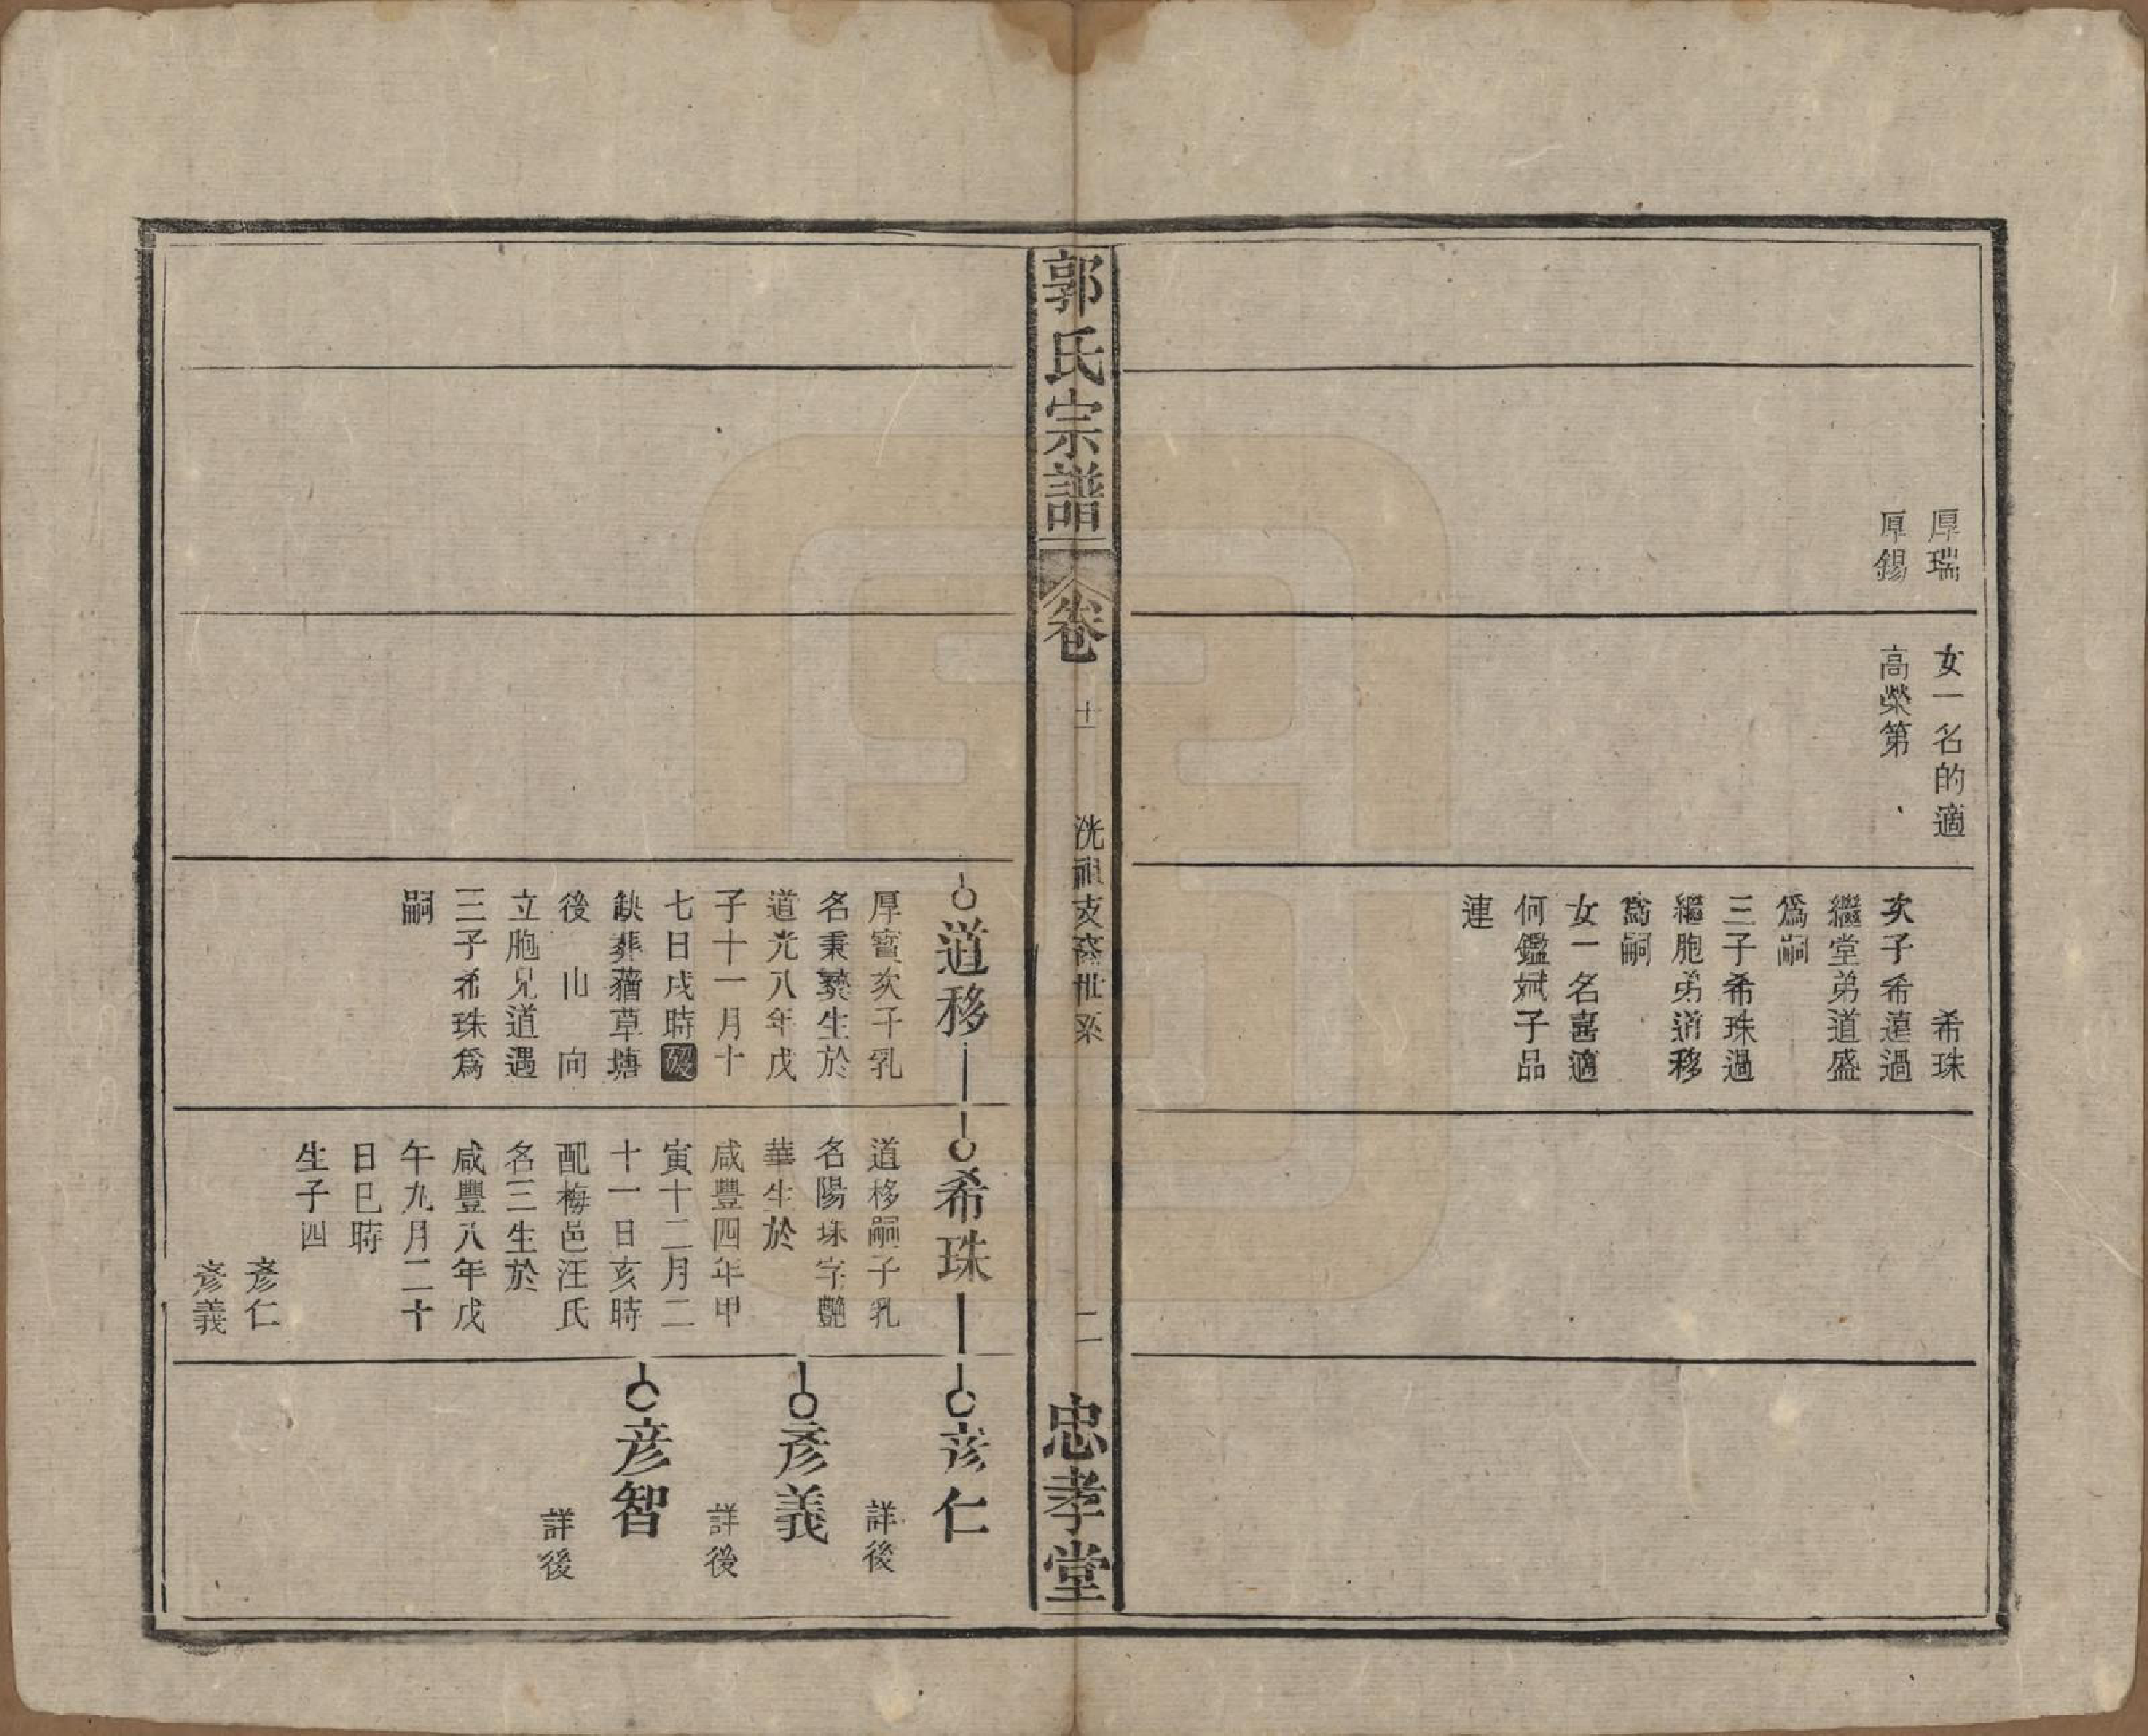 厚瑞
厚錫
女一名的適
高榮第
希珠
次子希遠過
繼堂弟道盛
爲嗣
三子希珠過
繼胞弟道移
爲嗣
女一名喜適
何鑑斌子品
連
郭氏宗譜
卷
十一
洸祖支齊世系
二
忠孝堂
道移
厚寶次子乳
名秉燊生於
道光八年戊
子十一月十
七日戌時歿
缺葬藕草塘
後山向
立胞兄道遇
三子希珠爲
嗣
希珠
道移嗣子乳
名陽珠字艷
華生於
咸豐四年甲
寅十二月二
十一日亥時
配梅邑汪氏
名三生於
咸豐八年戊
午九月二十
日巳時
生子四
彥仁
彥義
彥仁
詳後
彥義
詳後
彥智
詳後